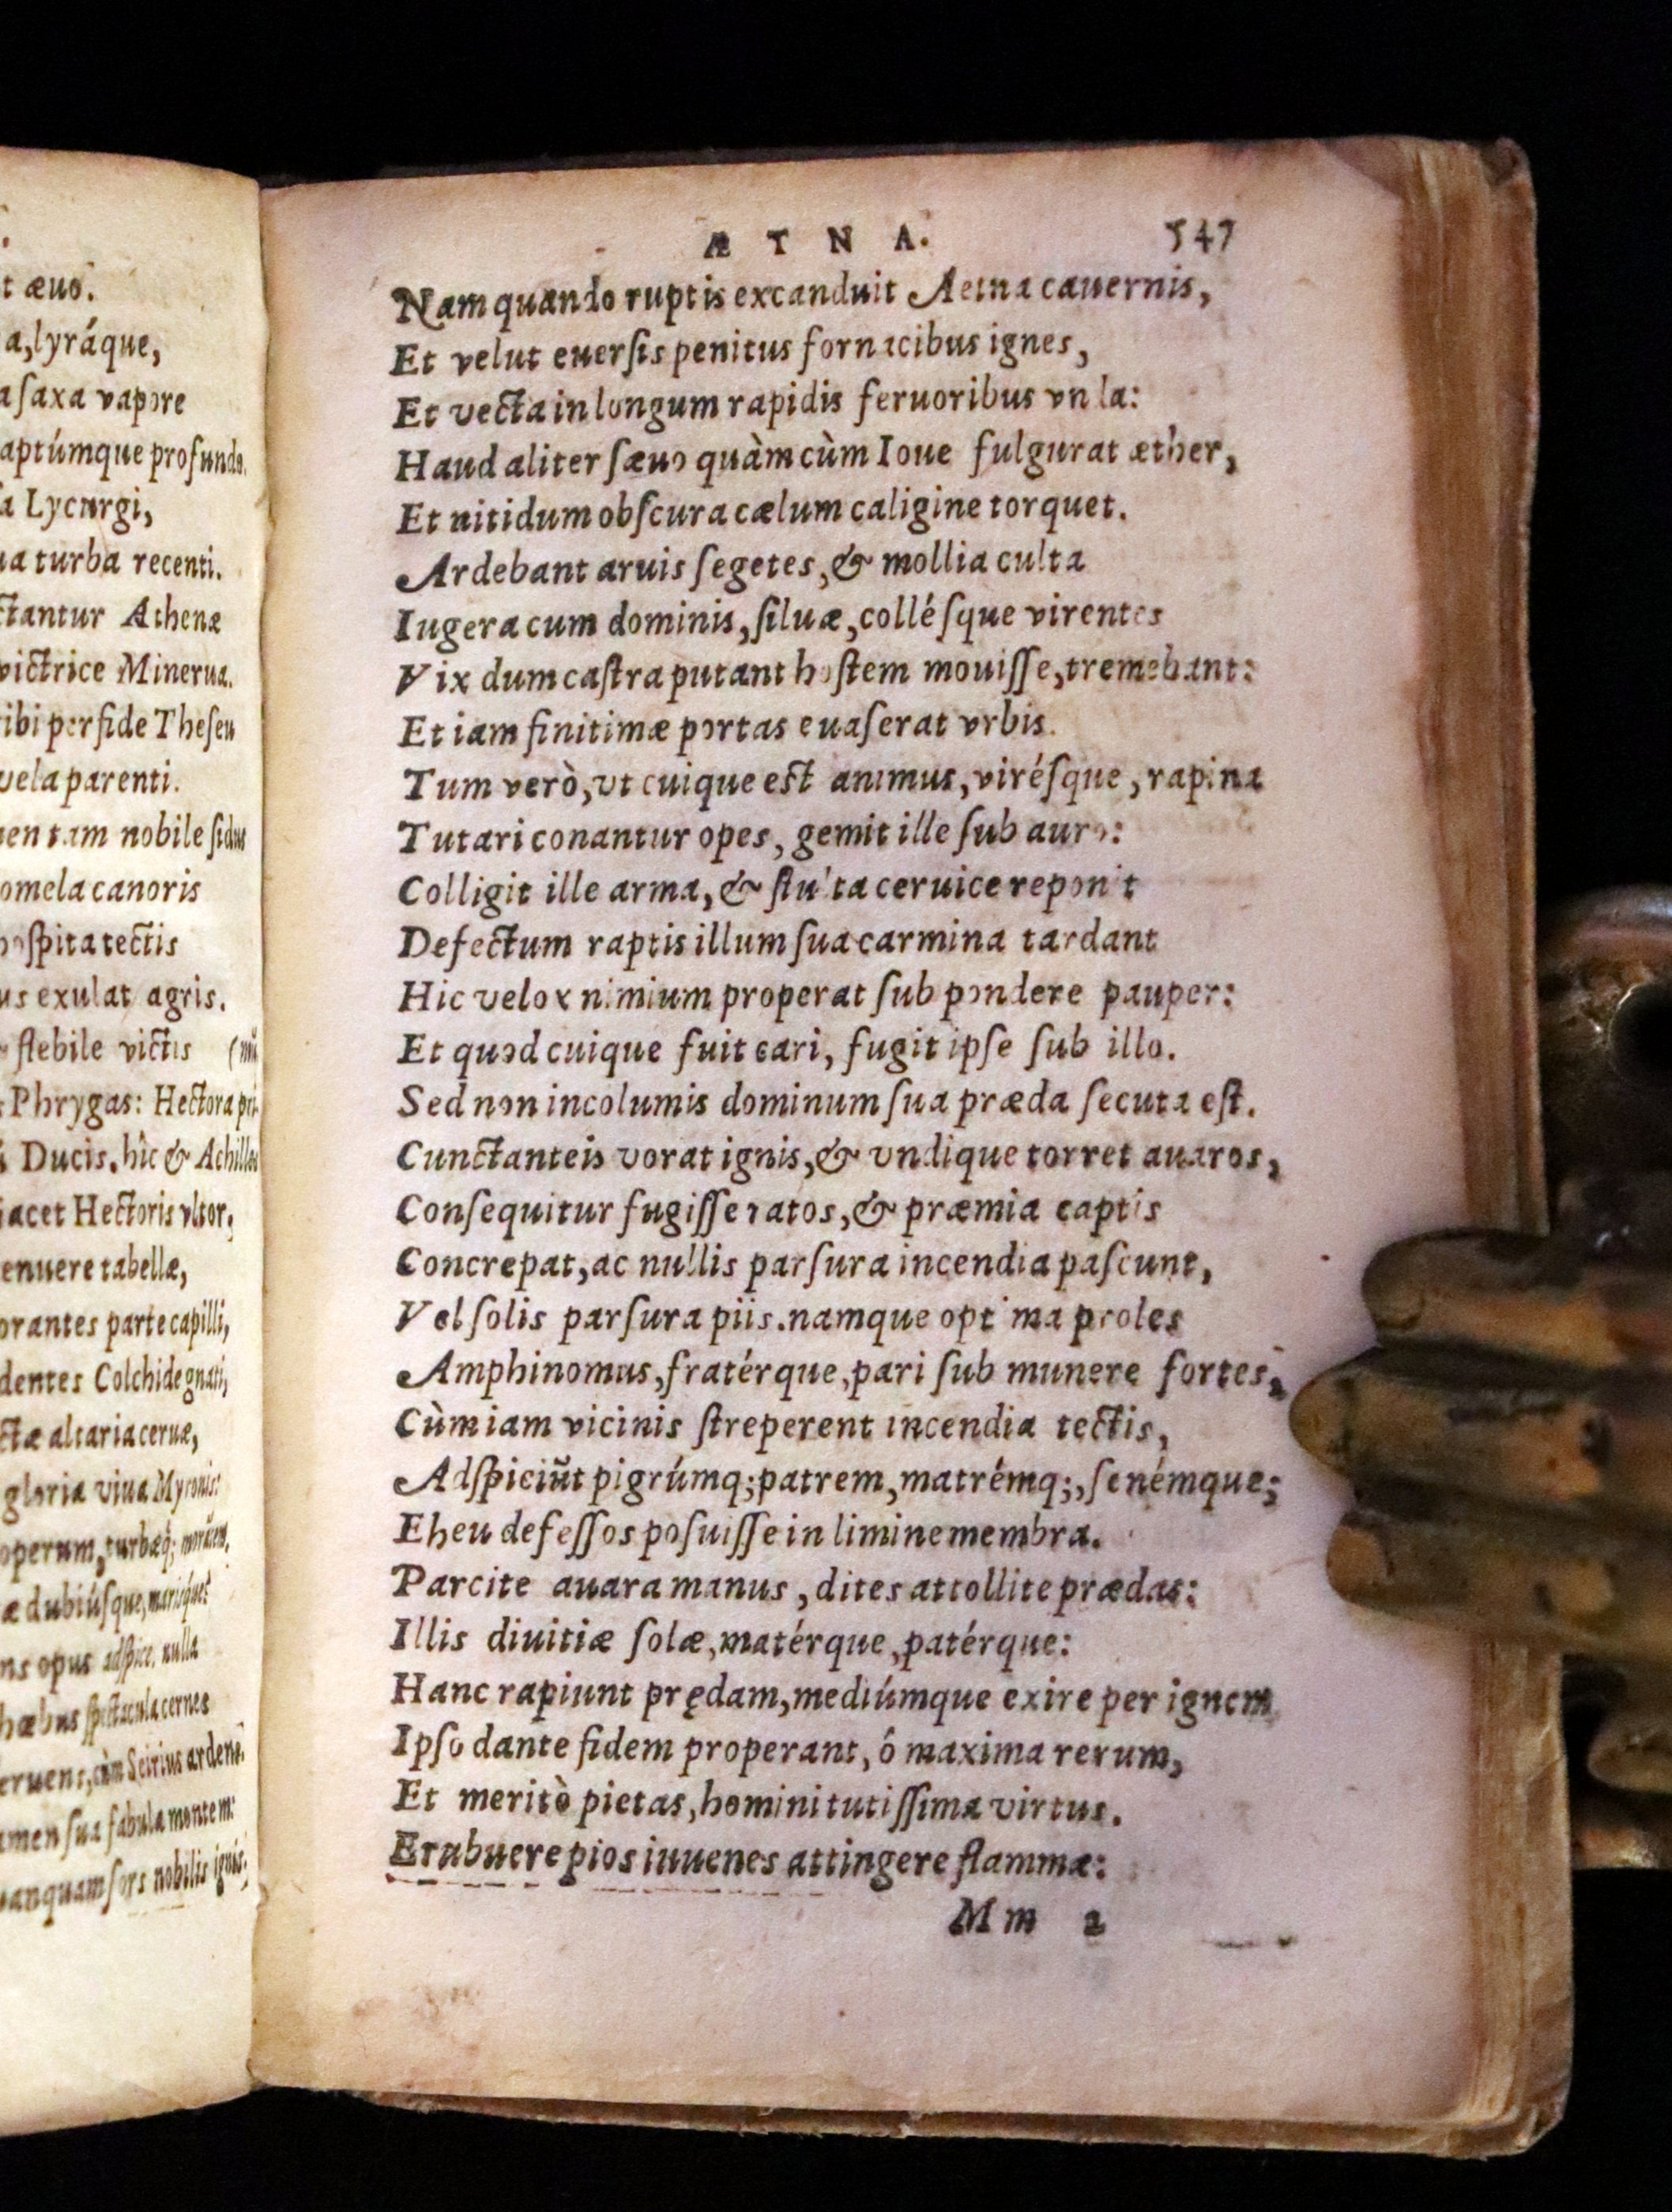 t æuo.
a, lyráque,
a ſaxa vapore
aptúmque profundo.
ſa Lycurgi,
ua turba recenti.
ctantur Athenæ
victrice Minerua.
ibi perfide Theſeu
vela parenti.
nobile ſidus
omela canoris
hoſpita tectis
us exulat agris.
flebile victis
Phrygas: Hectora
Ducis, hîc & Achilles
iacet Hectoris vltor,
enuere tabellæ,
orantes parte capilli,
dentes Colchide gnati,
ctæ altaria ceruæ,
gloria viua Myronis:
operum, turbæq;
æ dubiúſque, mariſque?
ns opus adſpice. nulla
ſpectacula cernes
eruens, cùm Seirius ardens.
amen ſua fabula montem:
uanquam ſors nobilis ignis;
ÆTNA. 547
Nam quando ruptis excanduit Aetna cauernis,
Et velut euerſis penitus fornacibus ignes,
Et vecta in longum rapidis feruoribus vnda:
Haud aliter ſæuo quàm cùm Ioue fulgurat æther,
Et nitidum obſcura cælum caligine torquet.
Ardebant aruis ſegetes, & mollia culta
Iugera cum dominis, ſiluæ, colléſque virentes
Vix dum caſtra putant hoſtem mouiſſe, tremebant:
Et iam finitimæ portas euaſerat vrbis.
Tum verò, vt cuique est animus, viréſque, rapina
Tutari conantur opes, gemit ille ſub auro:
Colligit ille arma, & ſtulta ceruice reponit
Defectum raptis illum ſua carmina tardant
Hic velox nimium properat ſub pondere pauper:
Et quod cuique fuit cari, fugit ipſe ſub illo.
Sed non incolumis dominum ſua præda ſecuta eſt.
Cunctanteis vorat ignis, & vndique torret auaros,
Conſequitur fugiſſe ratos, & præmia captis
Concrepat, ac nullis parſura incendia paſcunt,
Vel ſolis parſura piis. namque optima proles
Amphinomus, fratérque, pari ſub munere fortes,
Cùm iam vicinis ſtreperent incendia tectis,
Adſpiciũt pigrúmq; patrem, matrémq;, ſenémque;
Eheu defeſſos poſuiſſe in limine membra.
Parcite auara manus, dites attollite prædas:
Illis diuitiæ ſolæ, matérque, patérque:
Hanc rapiunt prędam, mediúmque exire per ignem
Ipſo dante fidem properant, ô maxima rerum,
Et meritò pietas, homini tutiſſima virtus.
Erubuere pios iuuenes attingere flammæ:
Mm 2